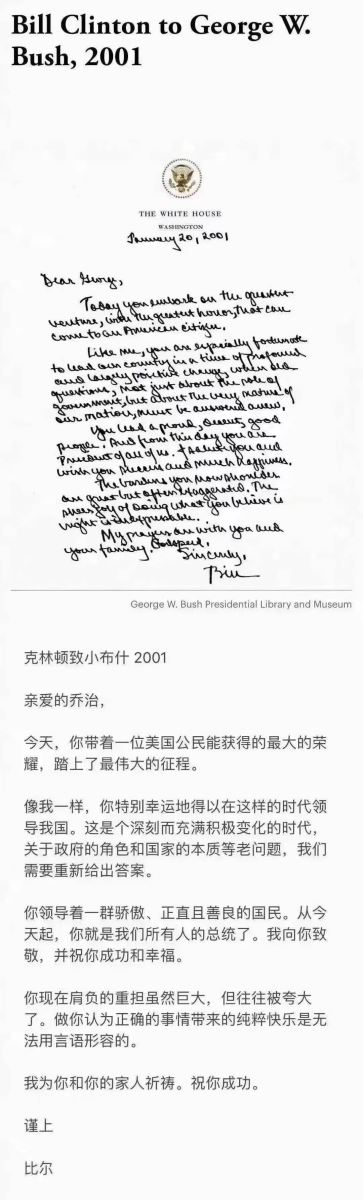 Bill Clinton to George W.
Bush, 2001
THE WHITE HOUSE
WASHINGTON
January 20, 2001
Dear George,
Today you embark on the greatest
venture, with the greatest honor, that can
come to an American citizen.
Like me, you are especially fortunate
to lead our country in a time of profound
and largely positive change, when old
questions, not just about the role of
government, but about the very nature of
our nation, must be answered anew.
You lead a proud, decent, good
people. And from this day you are
President of all of us. I salute you and
wish you success and much happiness.
The burdens you now shoulder
are great but often exaggerated. The
sheer joy of doing what you believe is
right is inexpressible.
My prayers are with you and
your family. Godspeed.
Sincerely,
Bill
George W. Bush Presidential Library and Museum
克林顿致小布什 2001
亲爱的乔治，
今天，你带着一位美国公民能获得的最大的荣
耀，踏上了最伟大的征程。
像我一样，你特别幸运地得以在这样的时代领
导我国。这是个深刻而充满积极变化的时代，
关于政府的角色和国家的本质等老问题，我们
需要重新给出答案。
你领导着一群骄傲、正直且善良的国民。从今
天起，你就是我们所有人的总统了。我向你致
敬，并祝你成功和幸福。
你现在肩负的重担虽然巨大，但往往被夸大
了。做你认为正确的事情带来的纯粹快乐是无
法用言语形容的。
我为你和你的家人祈祷。祝你成功。
谨上
比尔